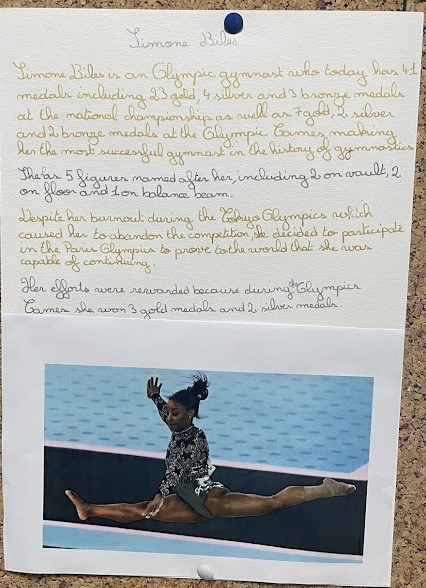 Simone Biles
Simone Biles is an Olympic gymnast who today has 41
medals including 23 gold, 4 silver and 3 bronze medals
at the national championship as well as 7 gold, 2 silver
and 2 bronze medals at the Olympic Games making
her the most successful gymnast in the history of gymnastics
She as 5 figures named after her, including 2 on vault, 2
on floor and 1 on balance beam.
Despite her burnout during the Tokyo Olympics which
caused her to abandon the competition, she decided to participate
in the Paris Olympics to prove to the world that she was
capable of continuing.
Her efforts were rewarded because during the Olympics
Games she won 3 gold medals and 2 silver medals.